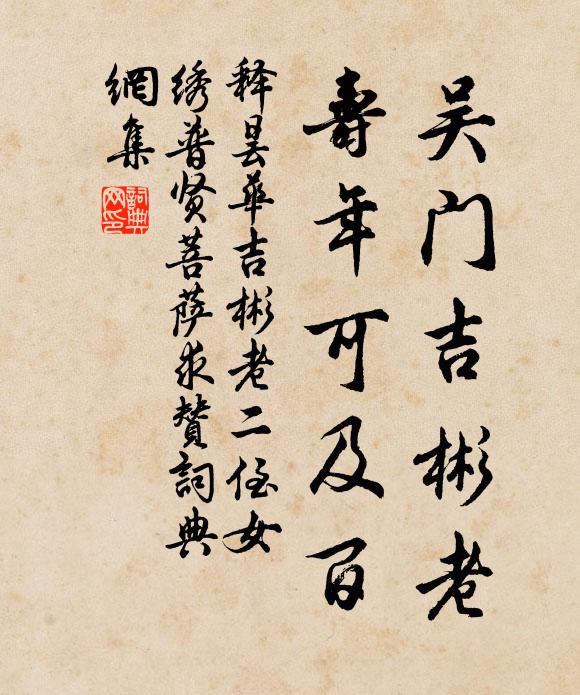 吴门吉彬老
寿年可及百
释昙华吉彬老二侄女
绣普贤菩萨求赞词典
網集
詞典
网印